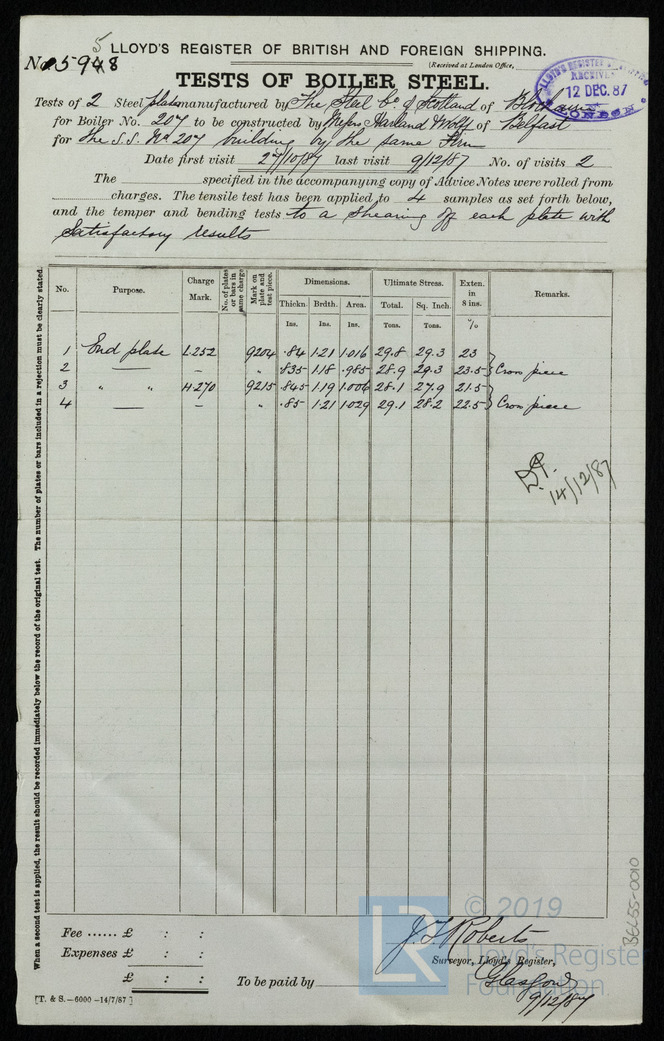 LLOYD'S REGISTER OF BRITISH AND FOREIGN SHIPPING.
No. 5948
5
(Received at London Office,
LLOYD'S REGISTER
RECEIVED
12 DEC. 87
LONDON
TESTS OF BOILER STEEL.
Tests of 2 Steel plates manufactured by The Steel Co. of Scotland of
for Boiler No. 207 to be constructed by Messrs Harland & Wolff of Belfast
for The S.S. No 207 building by the same Firm
Date first visit 27/10/87 last visit 9/12/87 No. of visits 2
The specified in the accompanying copy of Advice Notes were rolled from
charges. The tensile test has been applied to 4 samples as set forth below,
and the temper and bending tests to a shearing of each plate with
satisfactory results
No. Purpose. Charge Mark. No. of plates or bars in same charge Mark on plate and test piece. Dimensions. Ultimate Stress. Exten. in 8 ins. Remarks.
Thickn. Brdth. Area. Total. Sq. Inch.
Ins. Ins. Ins. Tons. Tons. %
1 End plate L252 9204 .84 1.21 1.016 29.8 29.3 23
2 — – " .835 1.18 .985 28.9 29.3 23.5 Cross piece
3 " " H270 9215 .845 1.19 1.006 28.1 27.9 21.5
4 — – " .85 1.21 1.029 29.1 28.2 22.5 Cross piece
14/12/87
When a second test is applied, the result should be recorded immediately below the record of the original test. The number of plates or bars included in a rejection must be clearly stated.
BEL55-0010
Fee ...... £ : :
Expenses £ : :
£ : :
J. T. Roberts
Surveyor, Lloyd's Register,
To be paid by
Glasgow
9/12/87
[T. & S.—6000—14/7/87]
LR
© 2019
Lloyd's Register
Foundation